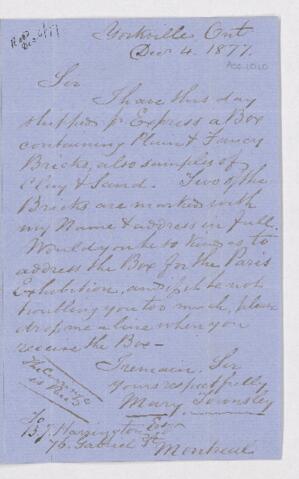 Yorkville Ont
Dec 4. 1877.
Sir
I have this day
shipped pr Express a Box
containing Plain & Fancy
Bricks, also samples of
Clay & Sand. Two of the
Bricks are marked with
my Name & address in full.
Would you be so kind as to
address the Box for the Paris
Exhibition, and if it be not
troubling you too much, please
drop me a line when you
receive the Box-
I remain, Sir
Yours respectfully
Mary Townsley
The
is Paid
To
B. J. Harrington Esqr
76. Gabriel St
Montreal